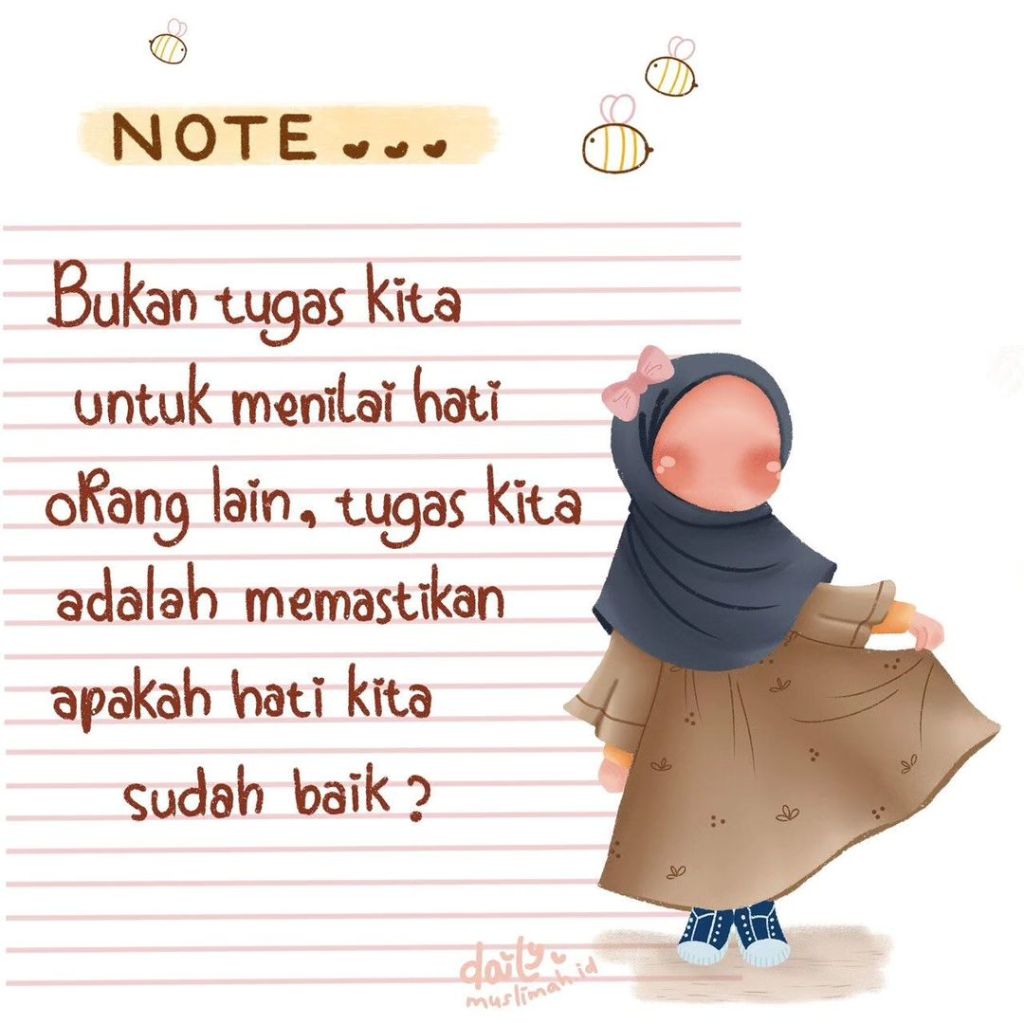 NOTE...
Bukan tugas kita
untuk menilai hati
oRang lain, tugas kita
adalah memastikan
apakah hati kita
sudah baik?
daily
muslimah.id